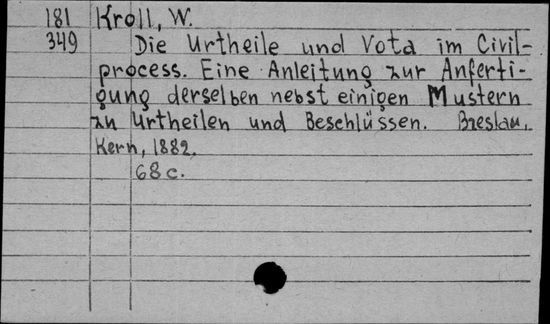 181 Kroll, W.
349 Die Urtheile und Vota im Civil-
process. Eine Anleitung zur Anferti-
gung derselben nebst einigen Mustern
zu Urtheilen und Beschlüssen. Breslau,
Kern, 1882.
68 c.